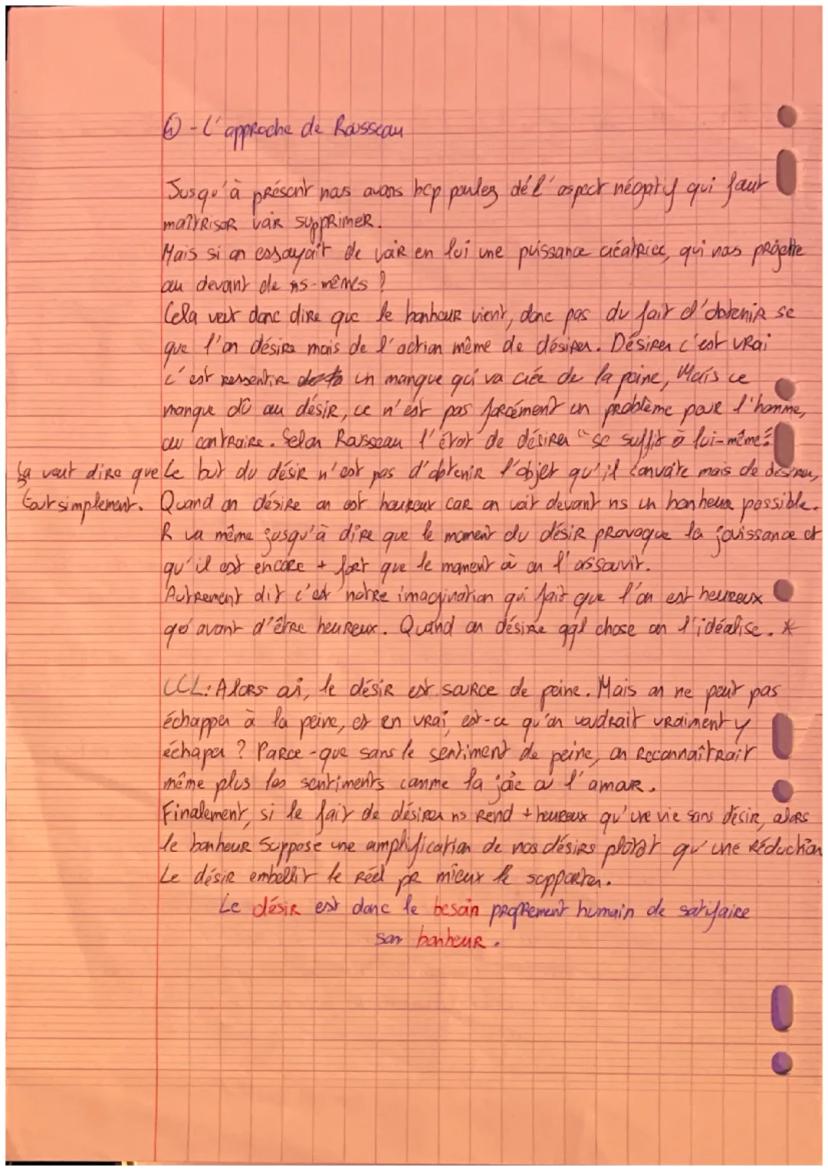 ④ - L'approche de Rousseau
Jusqu'à présent nous avons bcp parlez de l'aspect négatif qui faut
maîtriser voir supprimer.
Mais si on essayait de voir en lui une puissance créatrice, qui nous projette
au devant de ns-mêmes ?
Cela veut donc dire que le bonheur vient, donc pas du fait d'obtenir se
que l'on désire mais de l'action même de désirer. Désirer c'est vrai
c'est ressentir un manque qui va créé de la peine, Mais ce
manque dû au désir, ce n'est pas forcément un problème pour l'homme,
au contraire. Selon Rousseau l'état de désirer "se suffit à lui-même".
ça veut dire que Le but du désir n'est pas d'obtenir l'objet qu'il convoite mais de désirer,
tout simplement. Quand on désire on est heureux car on voit devant ns un bonheur possible.
R va même jusqu'à dire que le moment du désir provoque la jouissance et
qu'il est encore + fort que le moment où on l'assouvit.
Autrement dit c'est notre imagination qui fait que l'on est heureux
qu'avant d'être heureux. Quand on désire qql chose on l'idéalise. *
CCL: Alors oui, le désir est source de peine. Mais on ne peut pas
échapper à la peine, et en vrai, est-ce qu'on voudrait vraiment y
échaper ? Parce-que sans le sentiment de peine, on Reconnaîtrait
même plus les sentiments comme la joie ou l'amour.
Finalement, si le fait de désirer ns Rend + heureux qu'une vie sans désir, alors
le bonheur suppose une amplification de nos désirs plutôt qu'une Réduction
Le désir embellit le réel pr mieux le supporter.
Le désir est donc le besoin proprement humain de satisfaire
son bonheur.